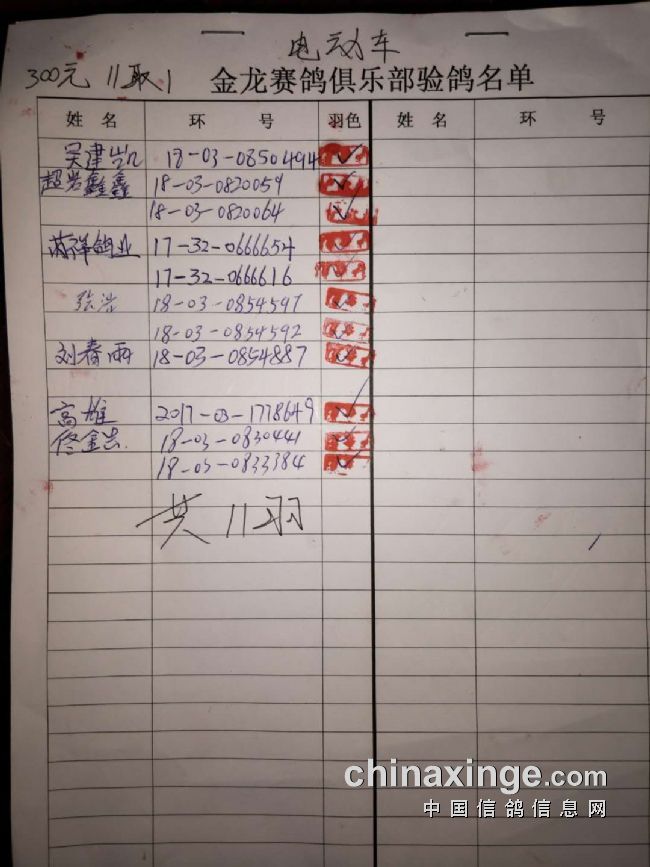 电动车
300元 11取1 金龙赛鸽俱乐部验鸽名单
姓 名 环 号 羽色 姓 名 环 号
吴津凯 18-03-0850494 ✓
超岩鑫鑫 18-03-0820059 ✓
18-03-0820064 ✓
鸽业 17-32-0666654 ✓
17-32-0666616 ✓
张浩 18-03-0854597 ✓
18-03-0854592 ✓
刘春雨 18-03-0854887 ✓
高雄 2017-03-1778649 ✓
佟金 18-03-0830441 ✓
18-03-0833384 ✓
共11羽
chinaxinge.com
中国信鸽信息网